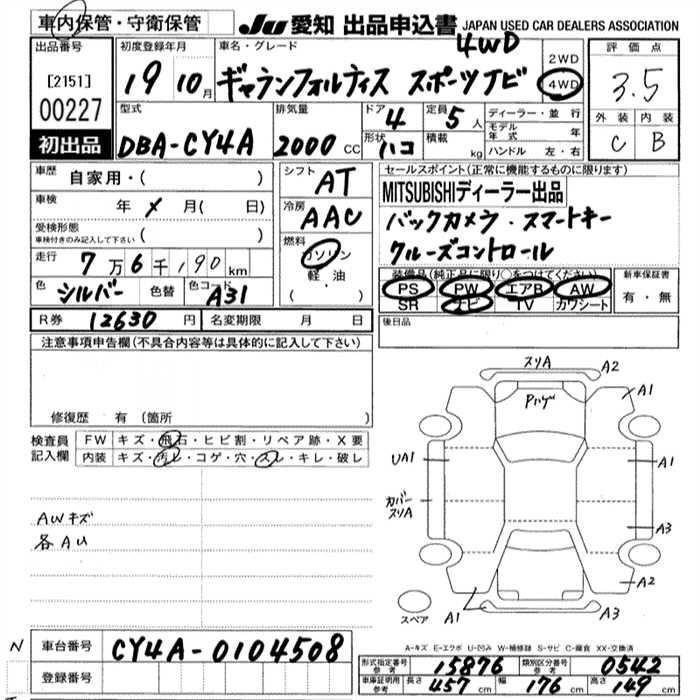 車内保管・守衛保管
JU 愛知 出品申込書 JAPAN USED CAR DEALERS ASSOCIATION
出品番号
[2151]
00227
初出品
初度登録年月
19 10月
車名・グレード
4WD
ギャランフォルティス スポーツナビ
2WD
4WD
評価点
3.5
外装 内装
C B
型式
DBA-CY4A
排気量
2000 CC
ドア 4
形状 ハコ
定員 5人
積載 kg
ディーラー・並行
モデル年式 年
ハンドル 左・右
車歴 自家用・( )
車検 年 メ 月( 日)
受検形態
車検付きのみ記入して下さい ( )
走行 7万6千190km
色 シルバー 色替 色コード A31
シフト AT
冷房 AAC
燃料
ガソリン
軽・油
( ・ )
セールスポイント(正常に機能するものに限ります)
MITSUBISHIディーラー出品
バックカメラ・スマートキー
クルーズコントロール
装備品(純正品に限り○をつけてください)
PS PW エアB AW
SR ナビ TV カワシート
新車保証書
有・無
R券 12630 円 名変期限 月 日
後日品
注意事項申告欄(不具合内容等は具体的に記入して下さい)
修復歴 有 (箇所 )
検査員記入欄
FW キズ・飛石・ヒビ割・リペア跡・X要
内装 キズ・汚レ・コゲ・穴・スレ・キレ・破レ
AWキズ
各AU
スリA A2
Pハゲ A1
UA1 A1
カバースリA
A3
A2
A1 A3
スペア
A-キズ E-エクボ U-凹み W-補修跡 S-サビ C-腐食 XX-交換済
N 車台番号 CY4A-0104508
登録番号
形式指定番号 参考 15876 類別区分番号 参考 0542
車庫証明用 参考 長さ 457 cm 幅 176 cm 高さ 149 cm